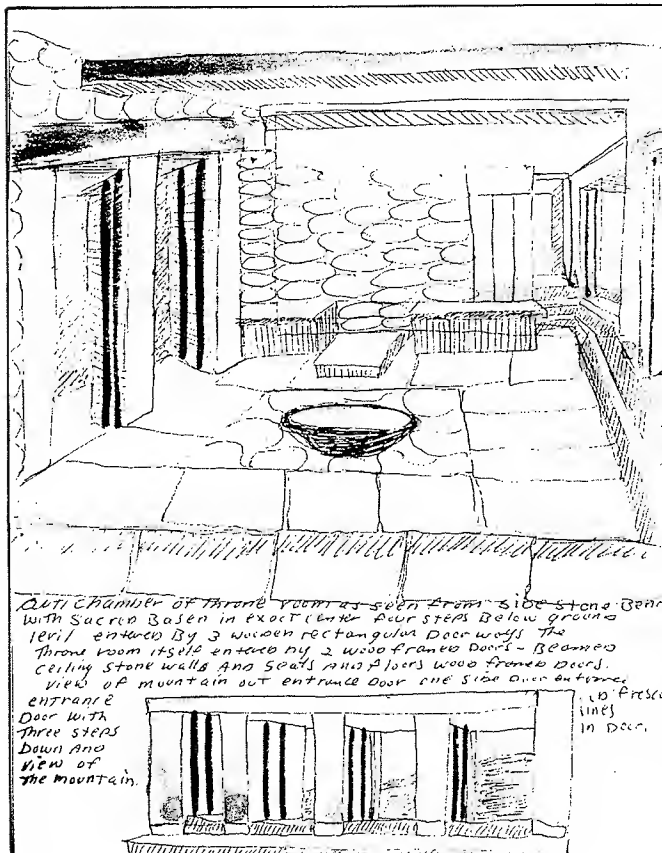 Anti chamber of Throne room as seen from side stone Benc
with sacred Basen in exoct center four steps Below ground
levil entered By 3 wooden rectangular Door ways The
Throne room itself entered by 2 wood framed Doors - Beamed
ceiling stone walls And seats And floors wood framed Doors.
view of mountain out entrance Door one side Door entrance
entrance
Door with
Three steps
Down And
view of
The mountain.
fresco
lines
in Door.